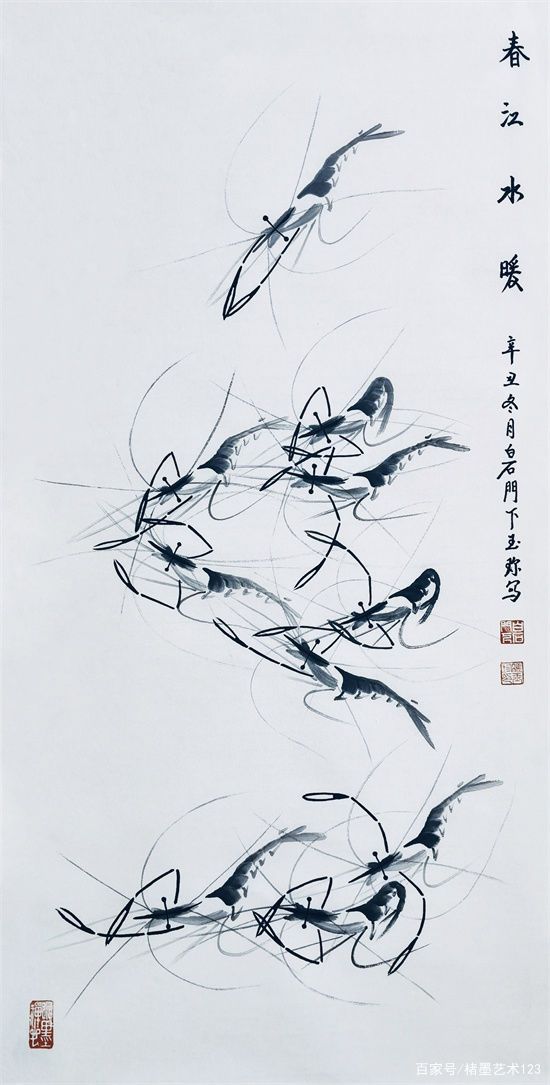 春江水暖
辛丑冬月白石門下玉珎写
百家号/楮墨艺术123